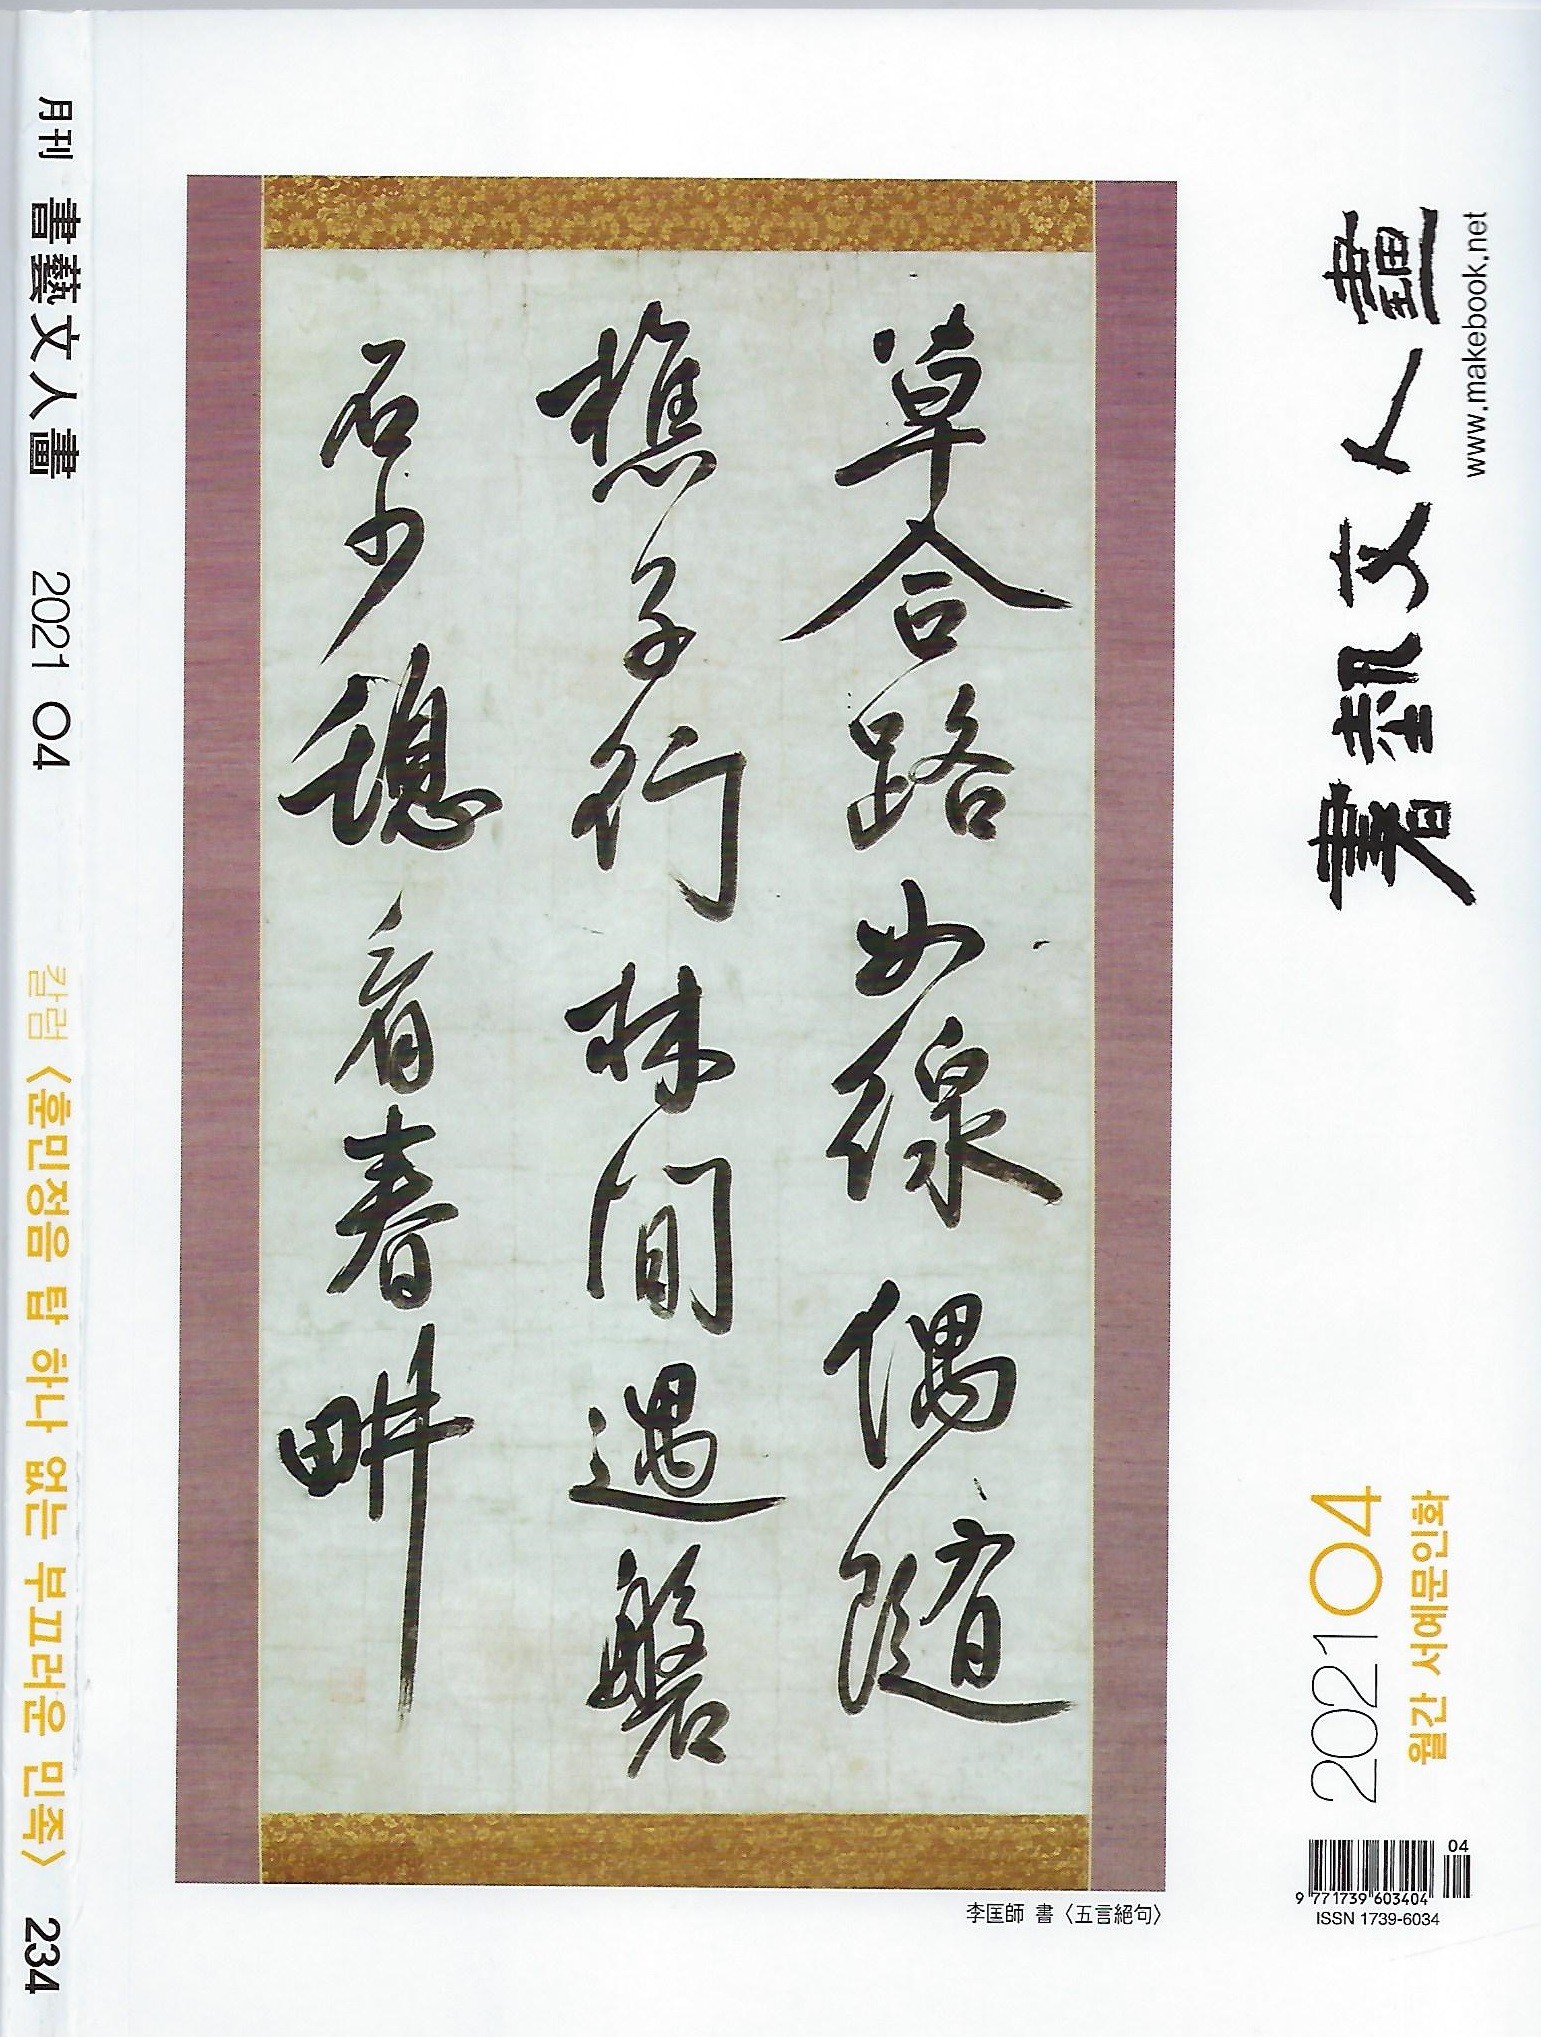 月刊 書藝文人畫 2021 04 칼럼 〈훈민정음 탑 하나 없는 부끄러운 민족〉 234
書藝文人畫
www.makebook.net
2021 04
월간 서예문인화
草合路如線偶隨
樵子行林間遇磐
石少憩看春畊
李匡師 書 〈五言絕句〉
04
9 771739 603404
ISSN 1739-6034